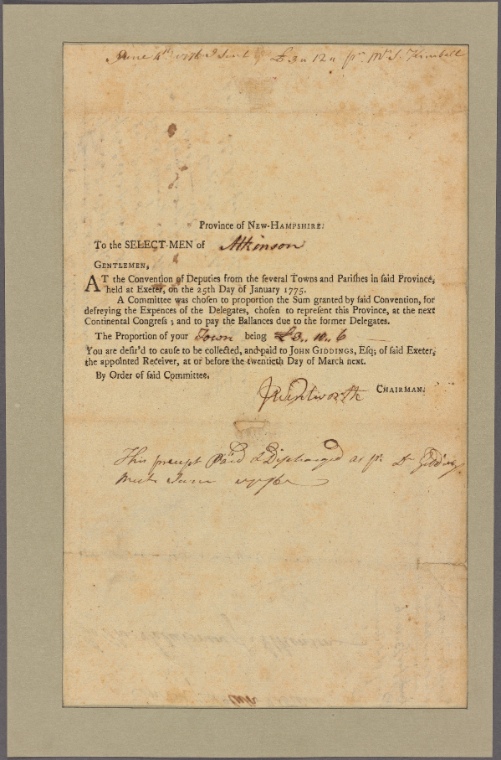 June 4th 1776 I Sent £3,, 12,, pr Mr J. Kimball
Province of NEW-HAMPSHIRE:
To the SELECT-MEN of Atkinson
GENTLEMEN,
AT the Convention of Deputies from the several Towns and Parishes in said Province,
held at Exeter, on the 25th Day of January 1775.
A Committee was chosen to proportion the Sum granted by said Convention, for
defreying the Expences of the Delegates, chosen to represent this Province, at the next
Continental Congress; and to pay the Ballances due to the former Delegates.
The Proportion of your Town being £3,, 6
You are desir'd to cause to be collected, and paid to JOHN GIDDINGS, Esq; of said Exeter,
the appointed Receiver, at or before the twentieth Day of March next.
By Order of said Committee.
JWentworth CHAIRMAN.
This precept Paid & Discharged as pr Dr Gidding
June 1776